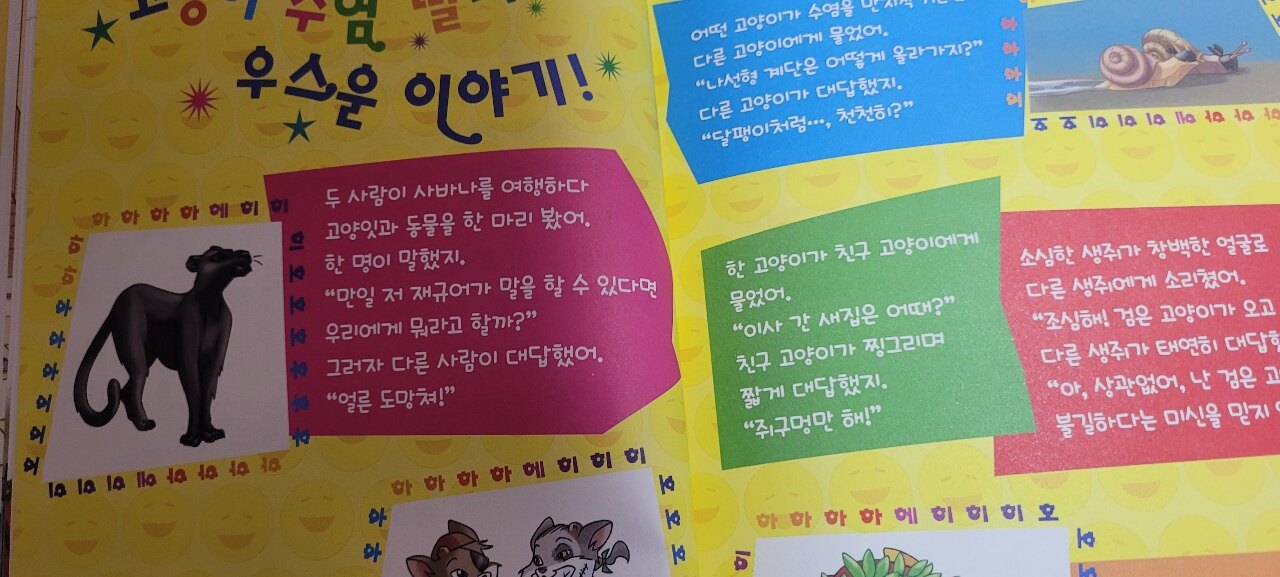 수염
우스운 이야기!
두 사람이 사바나를 여행하다
고양잇과 동물을 한 마리 봤어.
한 명이 말했지.
“만일 저 재규어가 말을 할 수 있다면
우리에게 뭐라고 할까?”
그러자 다른 사람이 대답했어.
“얼른 도망쳐!”
어떤 고양이가 수염을
다른 고양이에게 물었어.
“나선형 계단은 어떻게 올라가지?”
다른 고양이가 대답했지.
“달팽이처럼…, 천천히?”
한 고양이가 친구 고양이에게
물었어.
“이사 간 새집은 어때?”
친구 고양이가 찡그리며
짧게 대답했지.
“쥐구멍만 해!”
소심한 생쥐가 창백한 얼굴로
다른 생쥐에게 소리쳤어.
“조심해! 검은 고양이가 오고
다른 생쥐가 태연히
“아, 상관없어, 난 검은
불길하다는 미신을 믿지
하하하하헤히히
하하하하헤히히히
하하하하헤히히히호